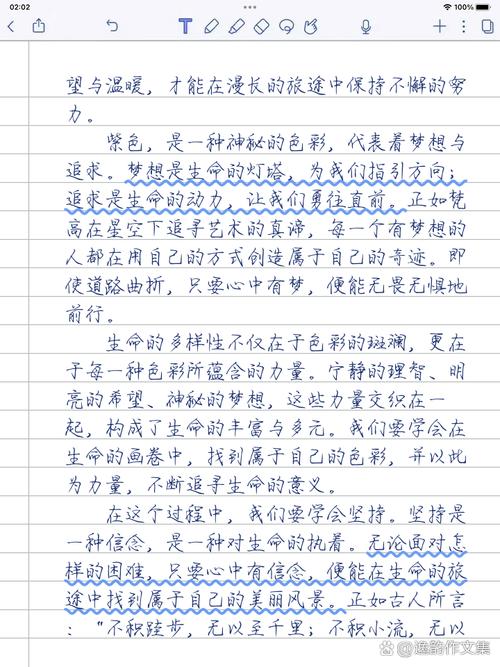 02:02
100%
T
望与温暖，才能在漫长的旅途中保持不懈的努
力。
紫色，是一种神秘的色彩，代表着梦想与
追求。梦想是生命的灯塔，为我们指引方向；
追求是生命的动力，让我们勇往直前。正如梵
高在星空下追寻艺术的真谛，每一个有梦想的
人都在用自己的方式创造属于自己的奇迹。即
使道路曲折，只要心中有梦，便能无畏无惧地
前行。
生命的多样性不仅在于色彩的斑斓，更在
于每一种色彩所蕴含的力量。宁静的理智、明
亮的希望、神秘的梦想，这些力量交织在一
起，构成了生命的丰富与多元。我们要学会在
生命的画卷中，找到属于自己的色彩，并以此
为力量，不断追寻生命的意义。
在这个过程中，我们要学会坚持。坚持是
一种信念，是一种对生命的执着。无论面对怎
样的困难，只要心中有信念，便能在生命的旅
途中找到属于自己的美丽风景。正如古人所言
：“不积跬步，无以至千里；不积小流，无以
@逸韵作文集